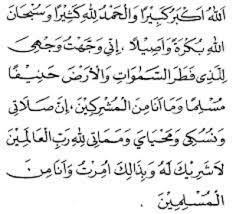 اَللّٰهُ اَكْبَرُ كَبِيْرًا وَالْحَمْدُ لِلّٰهِ كَثِيْرًا وَسُبْحَانَ
اللّٰهِ بُكْرَةً وَاَصِيْلًا . اِنِّى وَجَّهْتُ وَجْهِيَ
لِلَّذِى فَطَرَ السَّمٰوَاتِ وَالْاَرْضَ حَنِيْفًا
مُسْلِمًا وَمَا اَنَا مِنَ الْمُشْرِكِيْنَ . اِنَّ صَلَاتِى
وَنُسُكِى وَمَحْيَايَ وَمَمَاتِى لِلّٰهِ رَبِّ الْعَالَمِيْنَ
لَا شَرِيْكَ لَهُ وَبِذَالِكَ اُمِرْتُ وَاَنَا مِنَ
الْمُسْلِمِيْنَ .